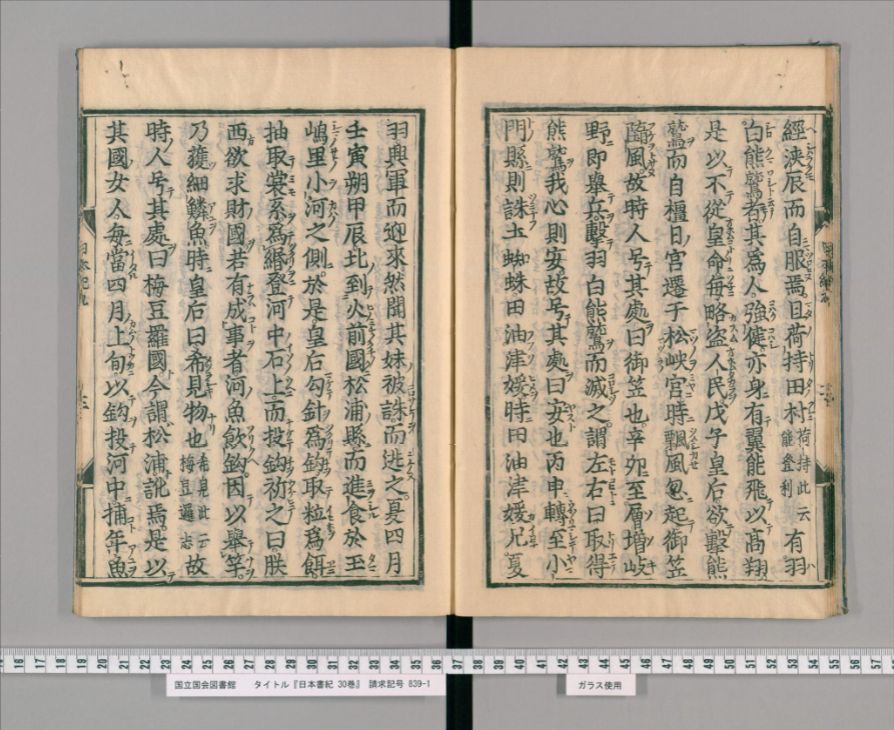 經浹辰而自服焉且荷持田村荷持此云能登利有羽
白熊鷲者其爲人強健亦身有翼能飛以髙翔
是以不從皇命每略盗人民戊子皇后欲擊熊
鷲而自橿日宮遷于松峽宮時飄風忽起御笠
隨風故時人号其處曰御笠也辛夘至層増岐
野即舉兵擊羽白熊鷲而滅之謂左右曰取得
熊鷲我心則安故号其處曰安也丙申轉至小
門縣則誅土蜘蛛田油津媛時田油津媛兄夏
羽興軍而迎來然聞其妹被誅而逃之夏四月
壬寅朔甲辰北到火前國松浦縣而進食於玉
嶋里小河之側於是皇后勾針爲鈎取粒爲餌
抽取裳糸爲緡登河中石上而投鈎祈之曰朕
西欲求財國若有成事者河魚飮鈎因以舉竿
乃獲細鱗魚時皇后曰希見物也希見此云梅豆邏志故
時人号其處曰梅豆羅國今謂松浦訛焉是以
其國女人每當四月上旬以鈎投河中捕年魚
国立国会図書館 タイトル『日本書紀 30巻』 請求記号 839-1
ガラス使用